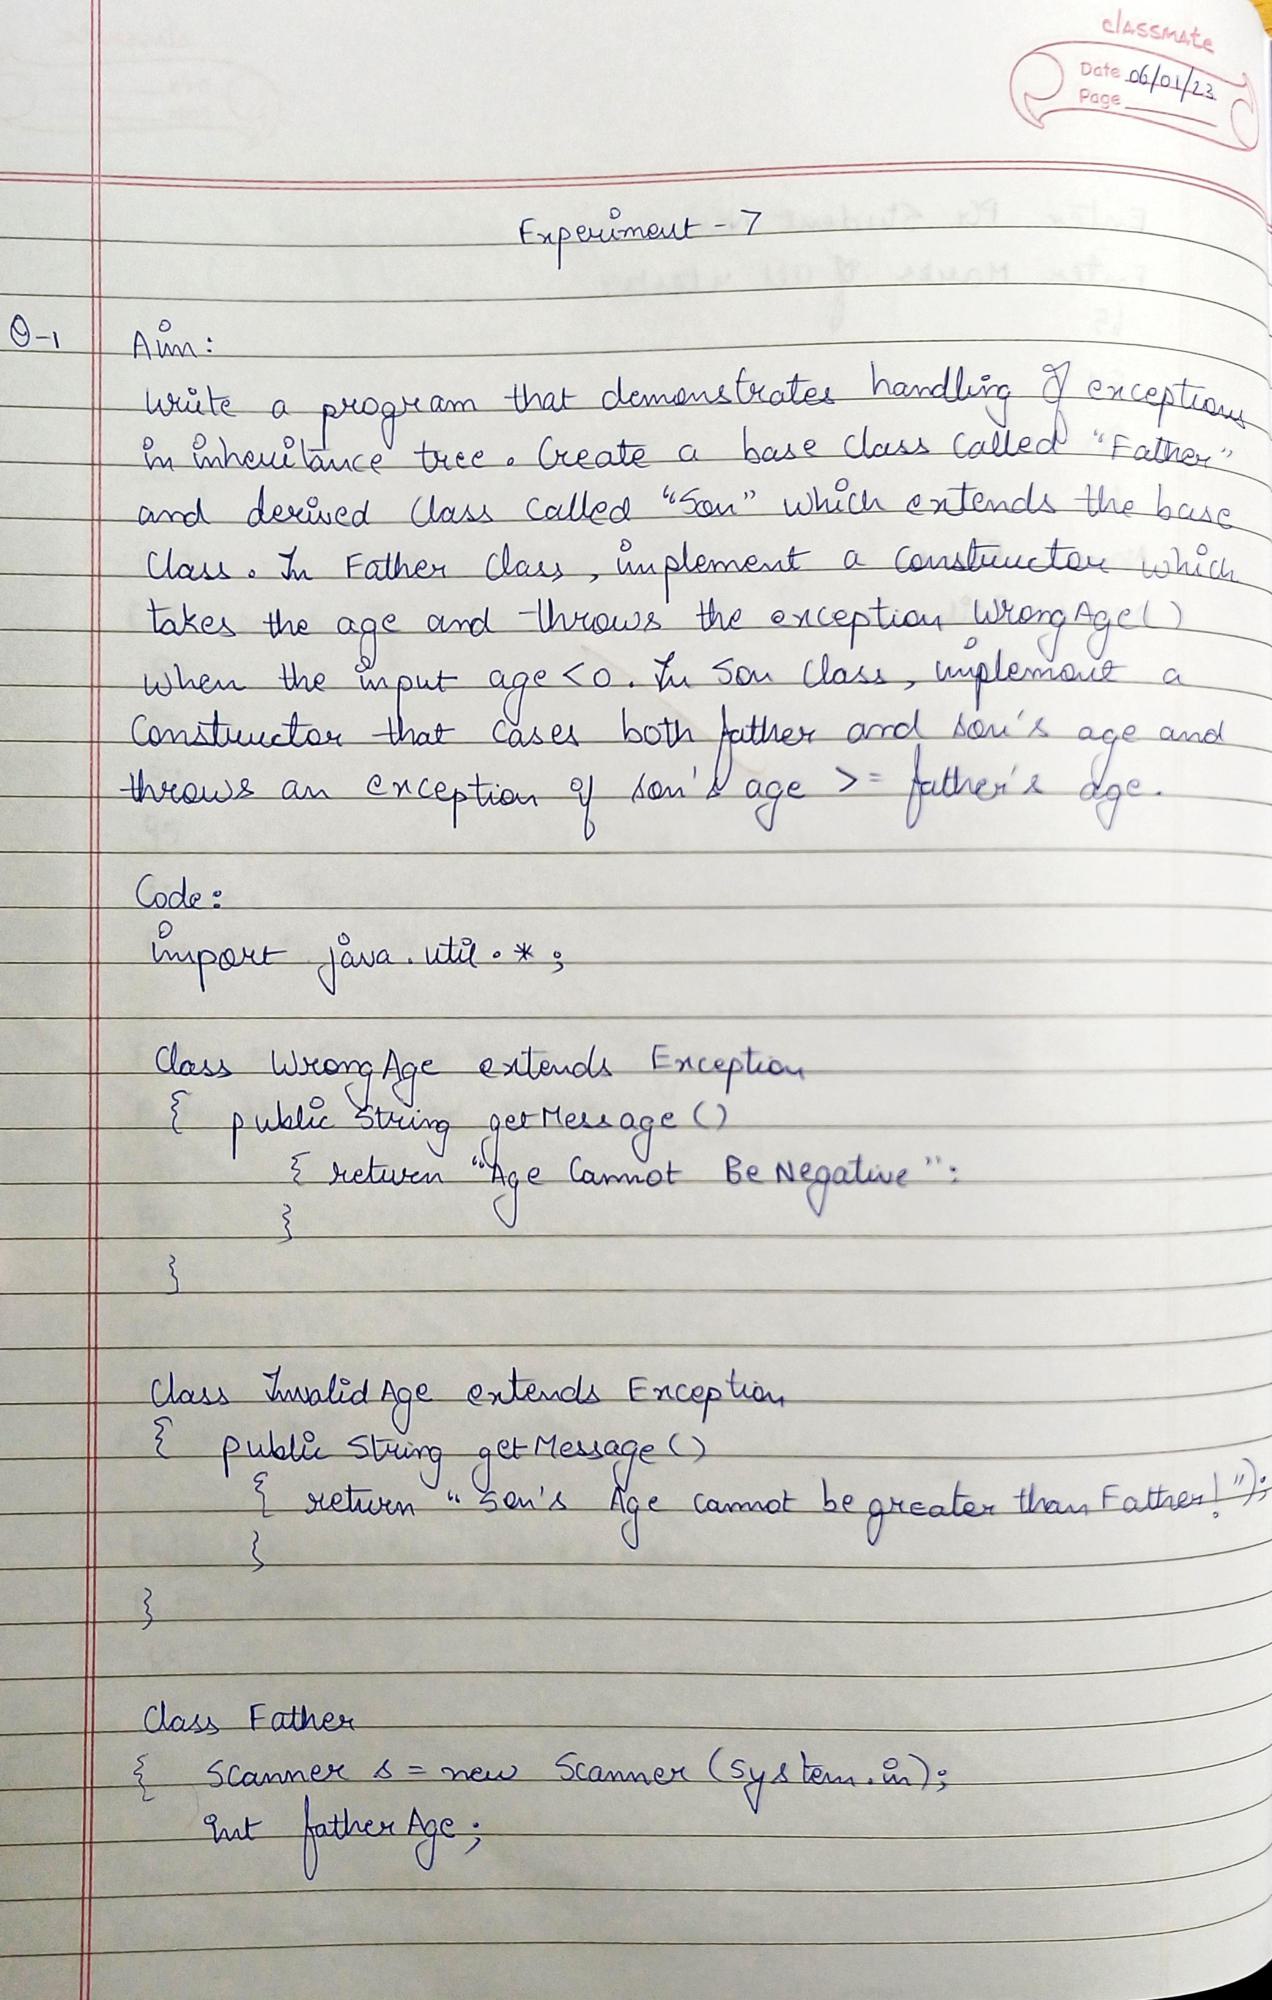 classmate
Date 06/01/23
Page
Experiment - 7
Q-1 Aim:
Write a program that demonstrates handling of exceptions
in inheritance tree. Create a base class called "Father"
and derived class called "Son" which extends the base
class. In Father class, implement a constructor which
takes the age and throws the exception WrongAge()
when the input age <0. In Son class, implement a
constructor that cases both father and son's age and
throws an exception if son's age >= father's age.
Code:
import java.util.*;
class WrongAge extends Exception
{ public String getMessage()
{ return "Age Cannot Be Negative":
}
}
class InvalidAge extends Exception
{ public String getMessage()
{ return "Son's Age cannot be greater than Father!");
}
}
class Father
{ Scanner s = new Scanner (System.in);
int fatherAge;